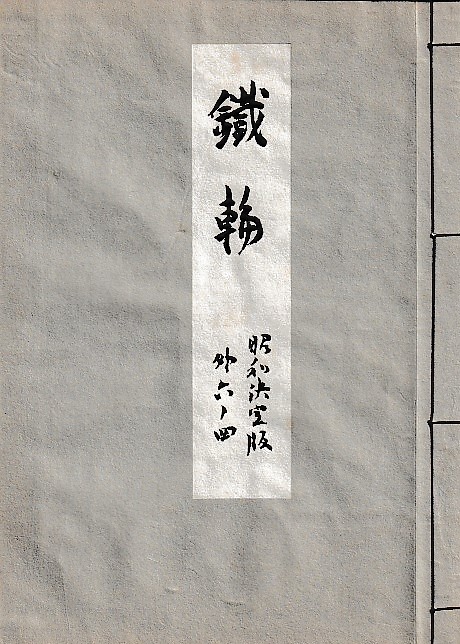 鐵輪
昭和決定版
外六ノ四